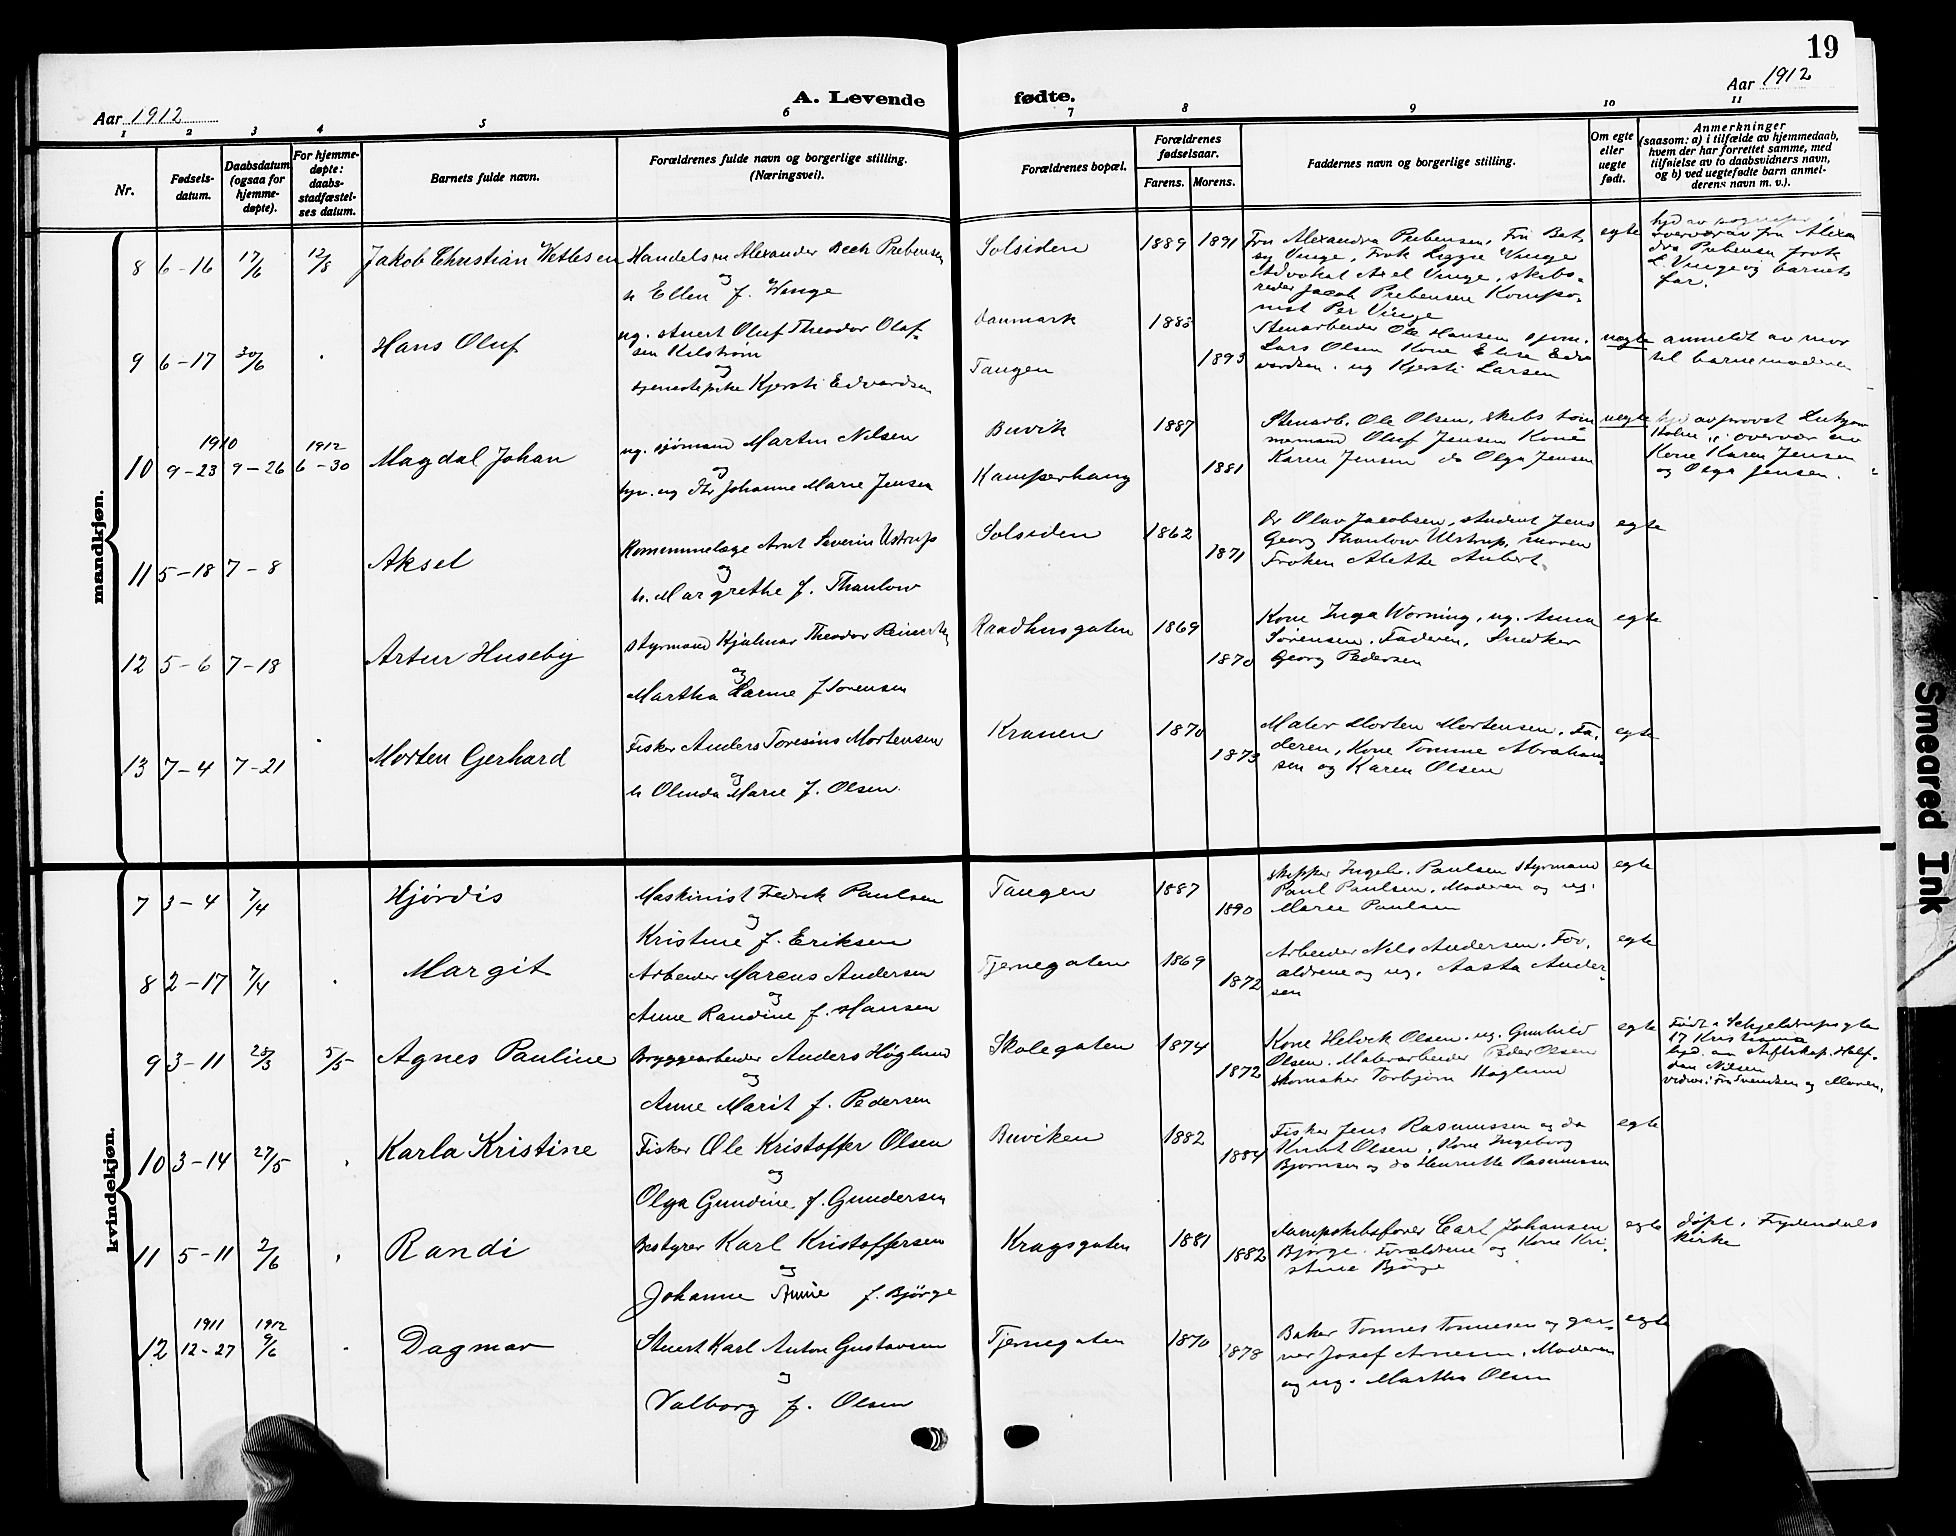 19
Aar 1912
A. Levende
fødte.
Aar 1912
1 2 3 4 5 6 7 8 9 10 11
Nr.
Fødsels-
datum.
Daabsdatum
(ogsaa for
hjemme-
døpte).
For hjemme-
døpte:
daabs-
stadfæstel-
ses datum.
Barnets fulde navn.
Forældrenes fulde navn og borgerlige stilling.
(Næringsvei).
Forældrenes bopæl.
Forældrenes
fødselsaar.
Farens. Morens.
Faddernes navn og borgerlige stilling.
Om egte
eller
uegte
født.
Anmerkninger
(saasom: a) i tilfælde av hjemmedaab,
hvem der har forrettet samme, med
tilføielse av to daabsvidners navn,
og b) ved uegtefødte barn anmel-
derens navn m. v.).
mandkjøn.
8 6-16 17/6 12/8 Jakob Christian Wetlesen
Handelsm Alexander Beck Prebensen
og
h Ellen f. Winge
Solsiden 1889 1891
Fru Alexandra Prebensen, Fru Bet-
sy Vinge, Frøk Liggie Vinge
Advokat Axel Vinge, skibs-
reder Jacob Prebensen Kompo-
nist Per Vinge
egte
overvær av fru Alexan
dra Prebensen frøk
L. Vinge og barnets
far.
9 6-17 30/6 Hans Oluf
ug. stuert Oluf Theodor Olaf-
sen Kilstrøm
og
tjenestepike Kjersti Edvardsen
Danmark 1883
Tangen 1893
Stenarbeider Ole Hansen sjøm.
Lars Olsen Kone Elise Edva
vardsen. ug Kjersti Larsen
uegte anmeldt av mor
til barnemoderen
10 1910 9-23 9-26 1912 6-30 Magdal Johan
ug. sjømand Martin Nilsen
og
ug dtr Johanne Marie Jensen
Buvik 1887
Kamperhaug 1881
Stenarb. Ole Olsen, skibs tøm
mermand Oluf Jensen Kone
Karen Jensen do Olga Jensen
uegte
hjd av provst
Holm i overvær av
Kone Karen Jensen
og Olga Jensen.
11 5-18 7-8 Aksel
Arnt Severin Ustrup
og
h. Margrethe f. Thaulow
Solsiden 1862 1871
Dr Olav Jacobsen, student Jens
Georg Thaulow Ulstrup, moren
Frøken Alette Aubert.
egte
12 5-6 7-18 Artur Huseby
Styrmand Hjalmar Theodor
og
Martha Hanne f Sørensen
Raadhusgaten 1869 1870
Kone Inga Worning, ug. Anna
Sørensen. Faderen, Snedker
Georg Pedersen
egte
13 7-4 7-21 Morten Gerhard
Fisker Anders Toresius Mortensen
og
h Olinda Marie f. Olsen
Kranen 1870 1873
Maler Morten Mortensen. Fa-
deren, Kone Tomine Abraham
sen og Karen Olsen
egte
kvindekjøn.
7 3-4 7/4 Hjørdis
Maskinist Fredrik Paulsen
og
Kristine f. Eriksen
Tangen 1887 1890
skipper Ingebr. Paulsen Styrmand
Paul Paulsen. Moderen og ug.
Maree Paulsen
egte
8 2-17 7/4 Margit
Arbeider Marcus Andersen
og
Anne Randine f. Hansen
Tjernegaten 1869 1872
Arbeider Nils Andersen. For-
ældrene og ug. Aasta Ander-
sen
egte
9 3-11 25/3 5/5 Agnes Pauline
Bryggearbeider Anders Høglund
og
Anne Marit f. Pedersen
Skolegaten 1874 1872
Kone Helvik Olsen. ug. Gunhild
Olsen. Malerarbeider Peder Olsen
skomaker Torbjørn Høglund
egte
Født i Schjeldrupsgten
17 Kristiania
hjd. av stiftskap. Half-
dan Nilsen
vidner: Fru Svendsen og Moren.
10 3-14 27/5 Karla Kristine
Fisker Ole Kristoffer Olsen
og
Olga Gundine f. Gundersen
Buviken 1882 1884
Fisker Jens Rasmussen og do
Knut Olsen, Kone Ingeborg
Bjørnsen og do Henriette Rasmussen
egte
11 5-11 2/6 Randi
Bestyrer Karl Kristoffersen
og
Johanne Amie f. Bjørge
Kragsgaten 1881 1882
Dampskibsfører Carl Johansen
Bjørge. Forældrene og Kone Kri-
stine Bjørge
egte døpt i Frydendals
kirke
12 1911 12-27 1912 9/6 Dagmar
Stuert Karl Anton Gustavsen
og
Valborg f. Olsen
Tjernegaten 1870 1878
Baker Tønnes Tønnesen og gar-
ver Josef Arnesen. Moderen
og ug. Martha Olsen
egte
Smeared Ink